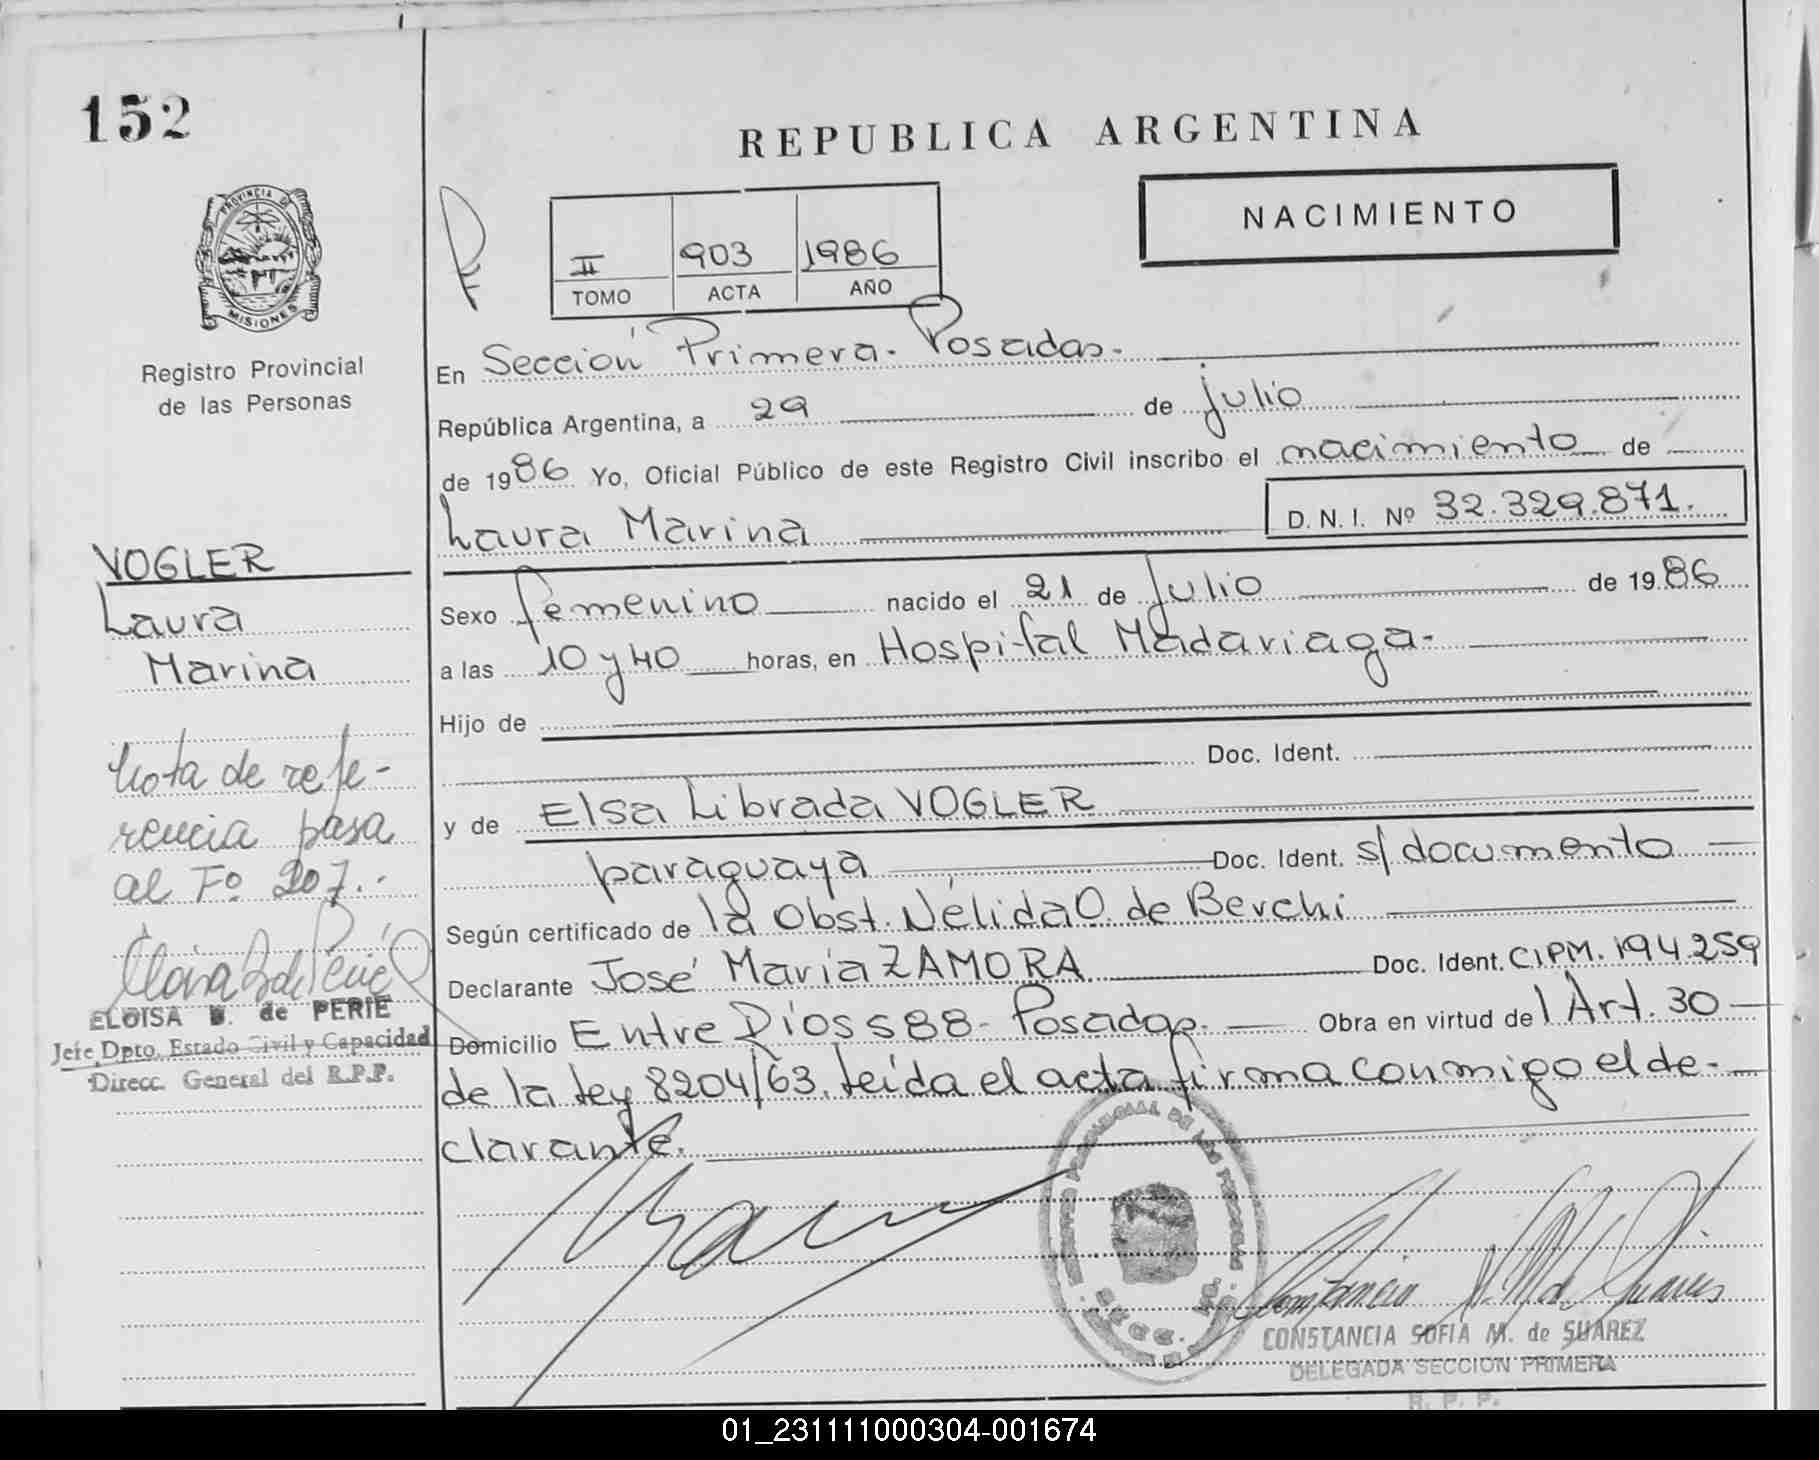 152
REPUBLICA ARGENTINA
NACIMIENTO
II 903 1986
TOMO ACTA AÑO
PROVINCIA DE
MISIONES
Registro Provincial
de las Personas
VOGLER
Laura
Marina
Nota de refe-
rencia pasa
al Fº 207.-
ELOISA B. de PERIE
Jefe Dpto. Estado Civil y Capacidad
Direcc. General del R.P.P.
En Sección Primera. Posadas.
República Argentina, a 29 de julio
de 1986 Yo, Oficial Público de este Registro Civil inscribo el nacimiento de
Laura Marina D. N. I. Nº 32.329.871.
Sexo femenino nacido el 21 de Julio de 1986
a las 10 y 40 horas, en Hospital Madariaga.
Hijo de
Doc. Ident.
y de Elsa Librada VOGLER
paraguaya Doc. Ident. s/documento
Según certificado de la Obst. Nélida O. de Berchi
Declarante José María ZAMORA Doc. Ident. CIPM. 194.259
Domicilio Entre Ríos 588- Posadas. Obra en virtud del Art. 30
de la Ley 8204/63. Leída el acta firma conmigo el de-
clarante.
CONSTANCIA SOFIA M. de SUAREZ
DELEGADA SECCION PRIMERA
R. P. P.
01_231111000304-001674